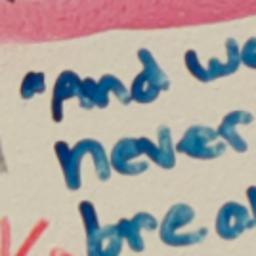 "And we
never
brea